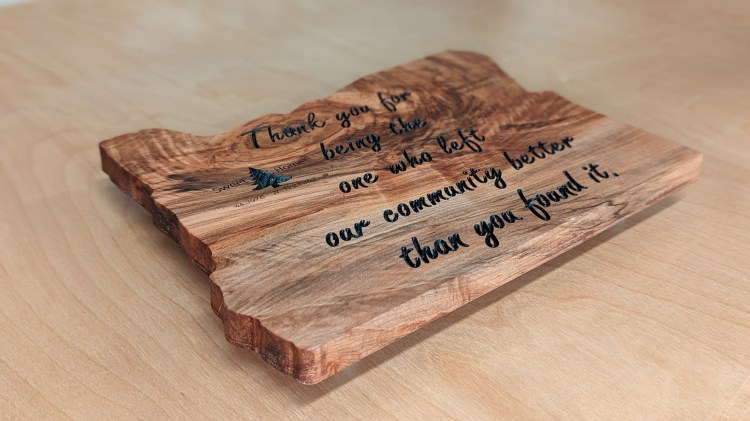 Thank you for
being the
one who left
our community better
than you found it.
Sweet Home